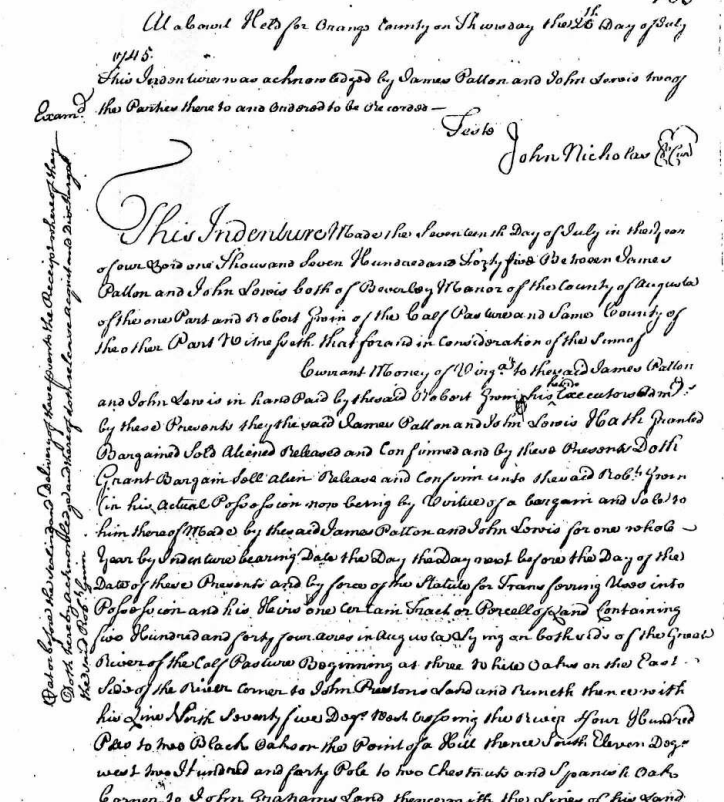 At a Court Held for Orange County on Thursday the 25th Day of July
1745.
This Indenture was acknowledged by James Patton and John Lewis two of
the Parties there to and Ordered to be Recorded —
Examd.
Teste
John Nicholas Cl Cur
This Indenture Made the Seventeenth Day of July in the Year
of our Lord one Thousand Seven Hundred and Forty five Between James
Patton and John Lewis both of Beverley Manor of the County of Augusta
of the one Part and Robert Gwin of the Calf Pasture and Same County of
the other Part Witnesseth that for and in Consideration of the Sum of
Currant Money of Virga. to the said James Patton
and John Lewis in hand Paid by the said Robert Gwin his heirs Executors Admrs.
by these Presents they the said James Patton and John Lewis Hath Granted
Bargained Sold Aliened Released and Confirmed and by these Presents Doth
Grant Bargain Sell alien Release and Confirm unto the said Robt. Gwin
(in his Actual Possession now being by Virtue of a bargain and Sale to
him thereof Made by the said James Patton and John Lewis for one whole
Year by Indenture bearing Date the Day the Day next before the Day of the
Date of these Presents and by force of the Statute for Transferring Uses into
Possession and his Heirs one Certain Tract or Parcell of Land Containing
five Hundred and forty four acres in Augusta Lying on both sids of the Great
River of the Calf Pasture Beginning at three White Oaks on the East
Side of the River corner to John Prestons Land and Runeth thence with
his Line North Seventy five Degs. West crossing the River four Hundred
Poles to two Black Oaks on the Point of a Hill thence South Eleven Degs
west two Hundred and forty Pole to two Chestnuts and Spanish Oak
Corner to John Grahams Land thence with the Lines of his Land
at or before the Sealing and delivery of these Presents the Receipt where of they
Doth hereby acknowledge and thereof doth release acquit and discharge
the said Robt. Gwin